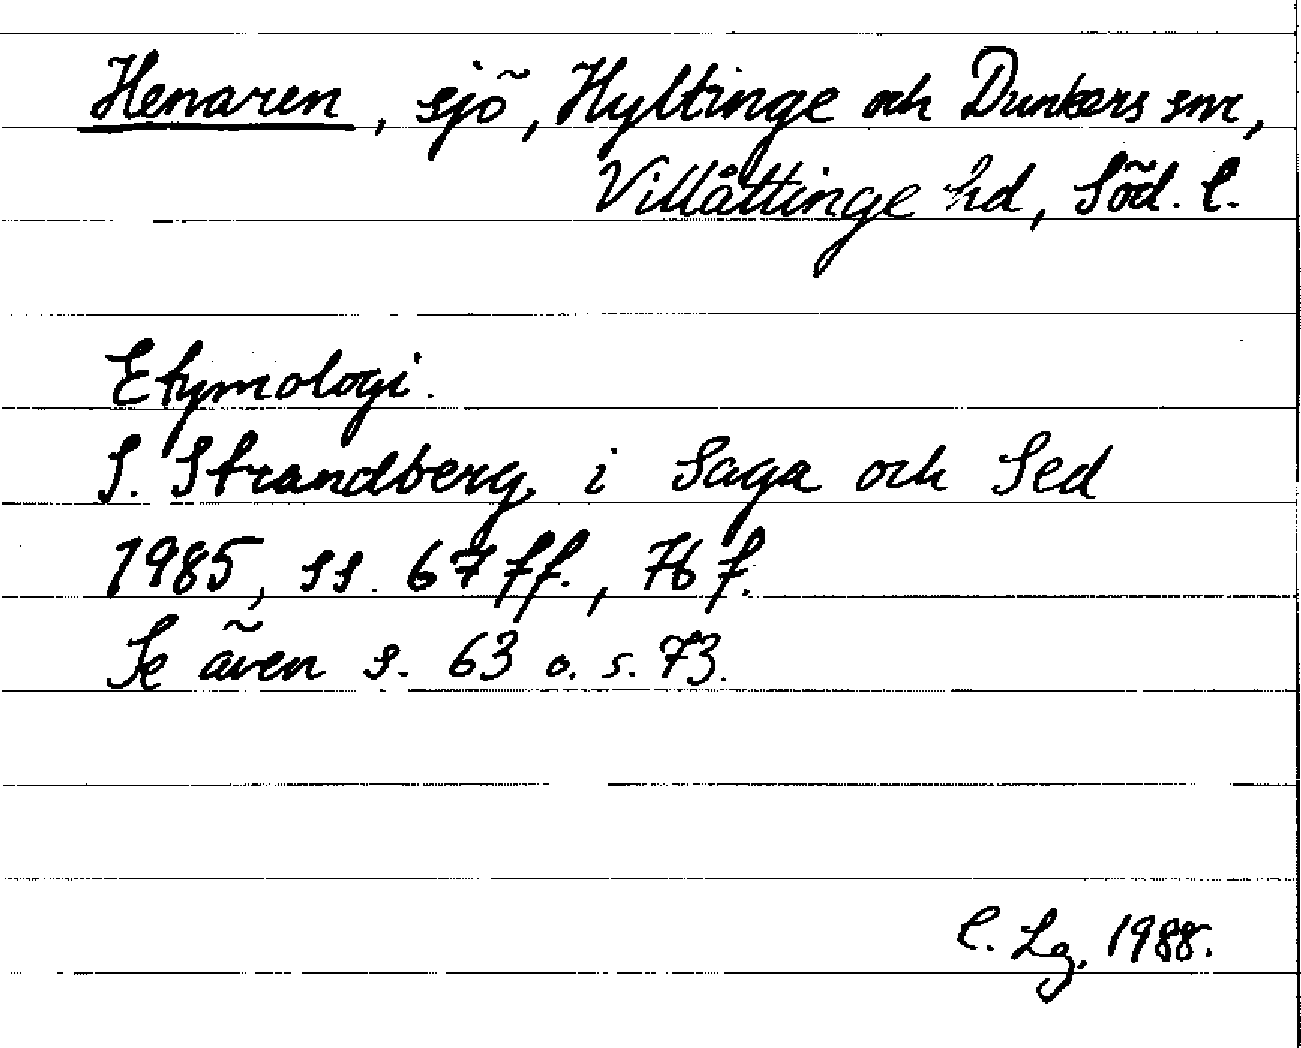 Henaren, sjö, Hyltinge och Dunkers snr,
Villåttinge hd, Söd. l.
Etymologi.
S. Strandberg i Saga och Sed
1985, ss. 67 ff., 76 f.
Se även s. 63 o. s. 73.
C. Lg. 1988.